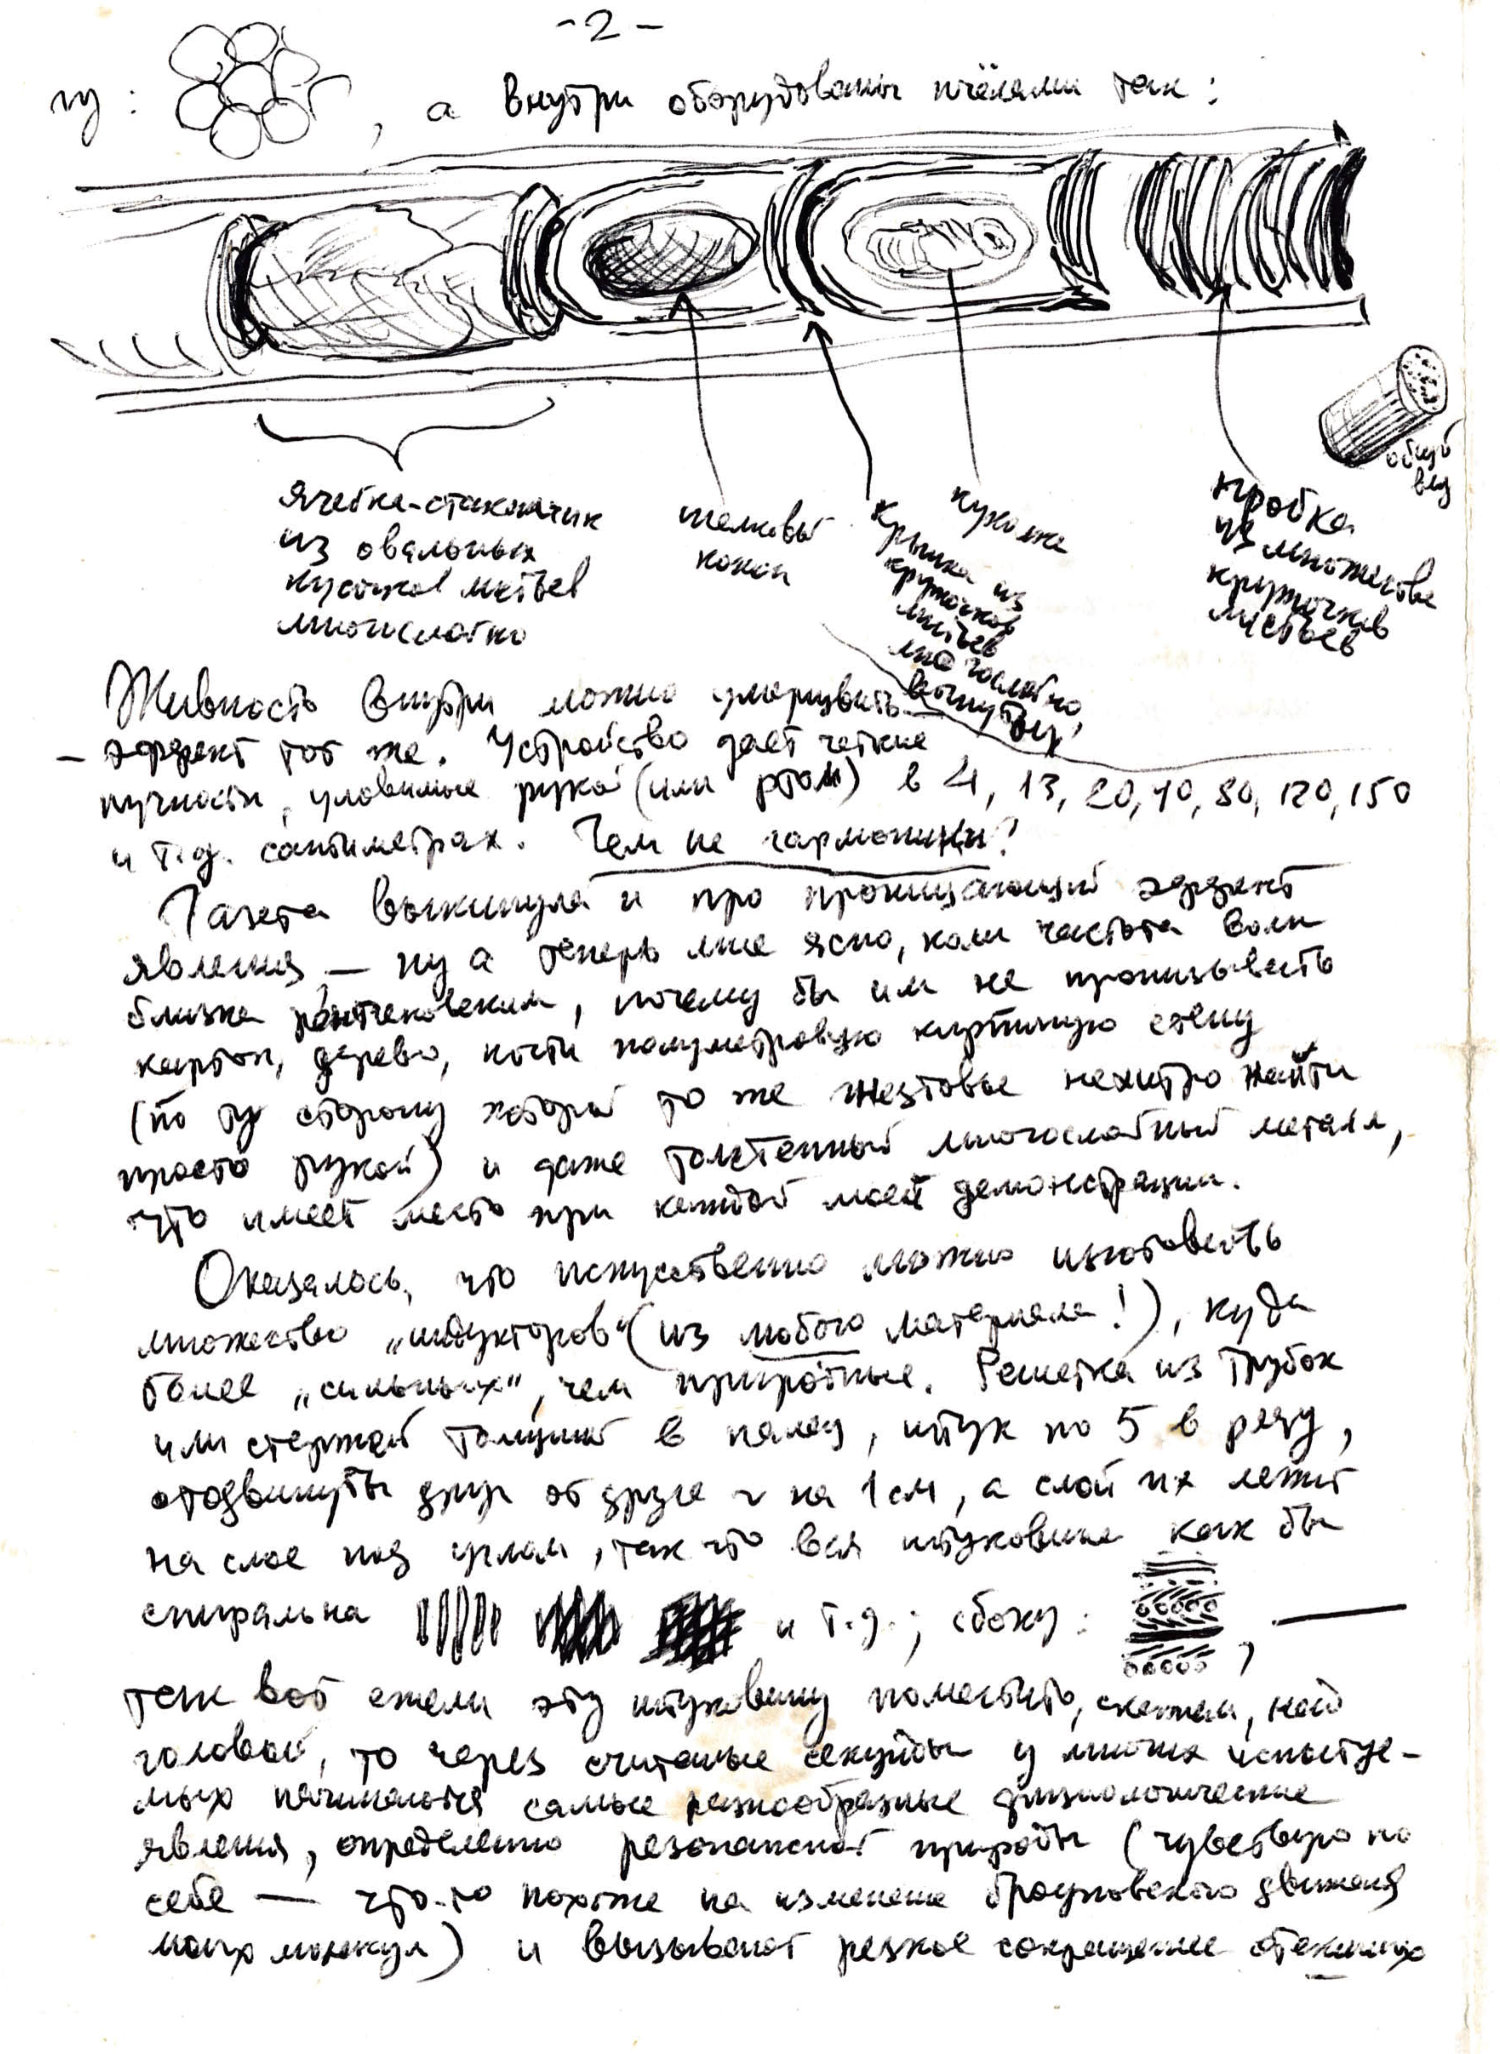 -2-
гу: , а внутри оборудованы пчёлами так:
общий
вид
ячейка-стаканчик
из овальных
кусочков листьев
многослойно
шелковый
кокон
крышка из
кружочков
листьев
многослойно,
вогнутых
куколка
пробка
из множества
кружочков
листьев
Живность внутри можно умертвить
— эффект тот же. Устройство дает четкие
пучности, уловимые рукой (или ртом) в 4, 13, 20, 40, 80, 120, 150
и т.д. сантиметрах. Чем не гармоники?
Газета выкинула и про проницающий эффект
явления — ну а теперь мне ясно, коли частота волн
близка рентгеновским, почему бы им не пронизывать
картон, дерево, почти полуметровую кирпичную стену
(по ту сторону которой то же гнездовье нехитро найти
просто рукой) и даже толстенный многослойный металл,
что имеет место при каждой моей демонстрации.
Оказалось, что искусственно можно изготовить
множество „индукторов" (из любого материала!), куда
более „сильных", чем природные. Решетка из трубок
или стержней толщиной в палец, штук по 5 в ряду,
отодвинуты друг от друга на 1 см, а слой их лежит
на слое под углом, так что вся штуковина как бы
спиральна и т.д.; сбоку: , —
так вот ежели эту штуковину поместить, скажем, над
головой, то через считаные секунды у многих испытуе-
мых начинаются самые разнообразные физиологические
явления, определенно резонансной природы (чувствую по
себе — что-то похоже на изменение броуновского движения
моих молекул) и вызывают резкое сокращение отекших